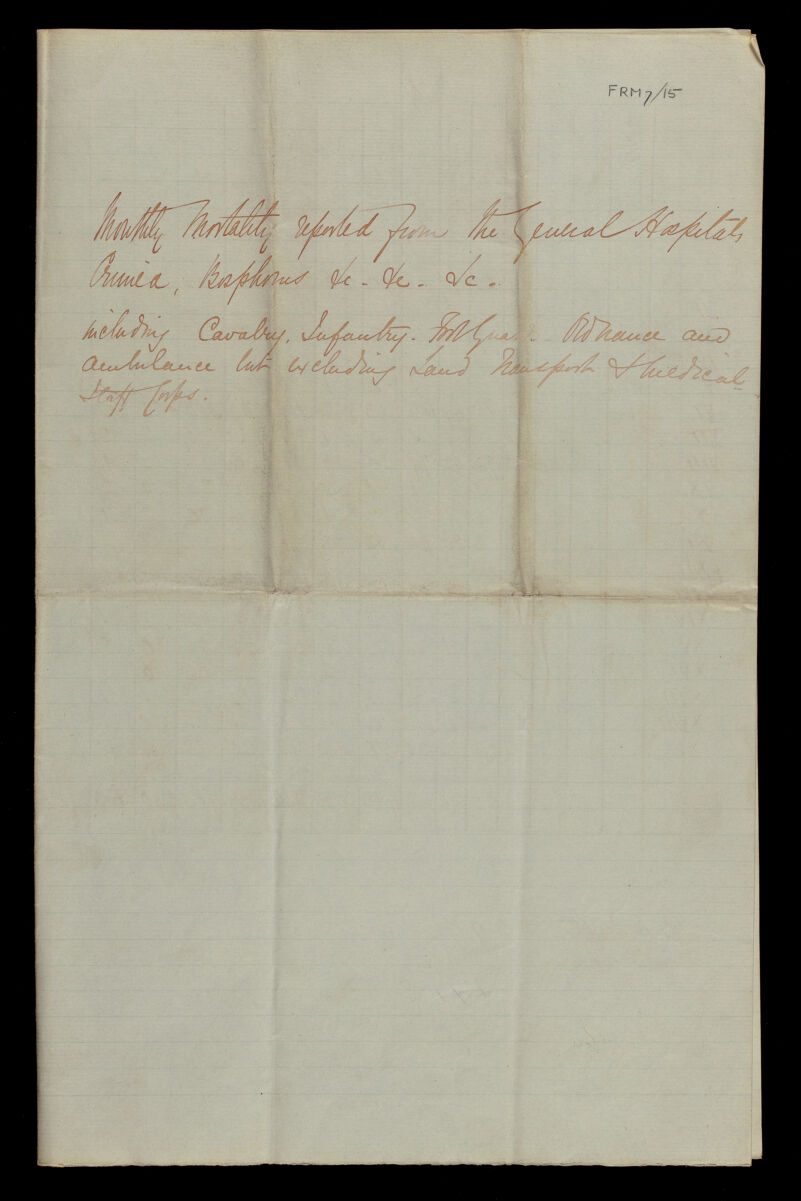 FRM7/15
Monthly Mortality reported from the General Hospitals
Crimea, Bosphorus &c - &c - &c.
including Cavalry. Infantry. Foot Guards. Ordnance and
Ambulance but excluding Land Transport & Medical
Staff Corps.